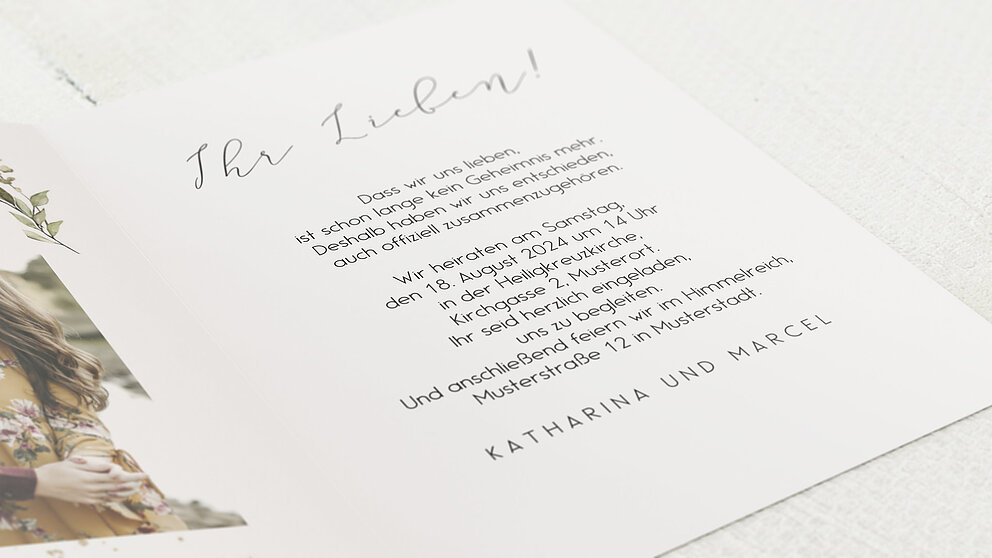 Ihr Lieben!
Dass wir uns lieben,
ist schon lange kein Geheimnis mehr.
Deshalb haben wir uns entschieden,
auch offiziell zusammenzugehören.
Wir heiraten am Samstag,
den 18. August 2024 um 14 Uhr
in der Heiligkreuzkirche,
Kirchgasse 2, Musterort.
Ihr seid herzlich eingeladen,
uns zu begleiten.
Und anschließend feiern wir im Himmelreich,
Musterstraße 12 in Musterstadt.
KATHARINA UND MARCEL